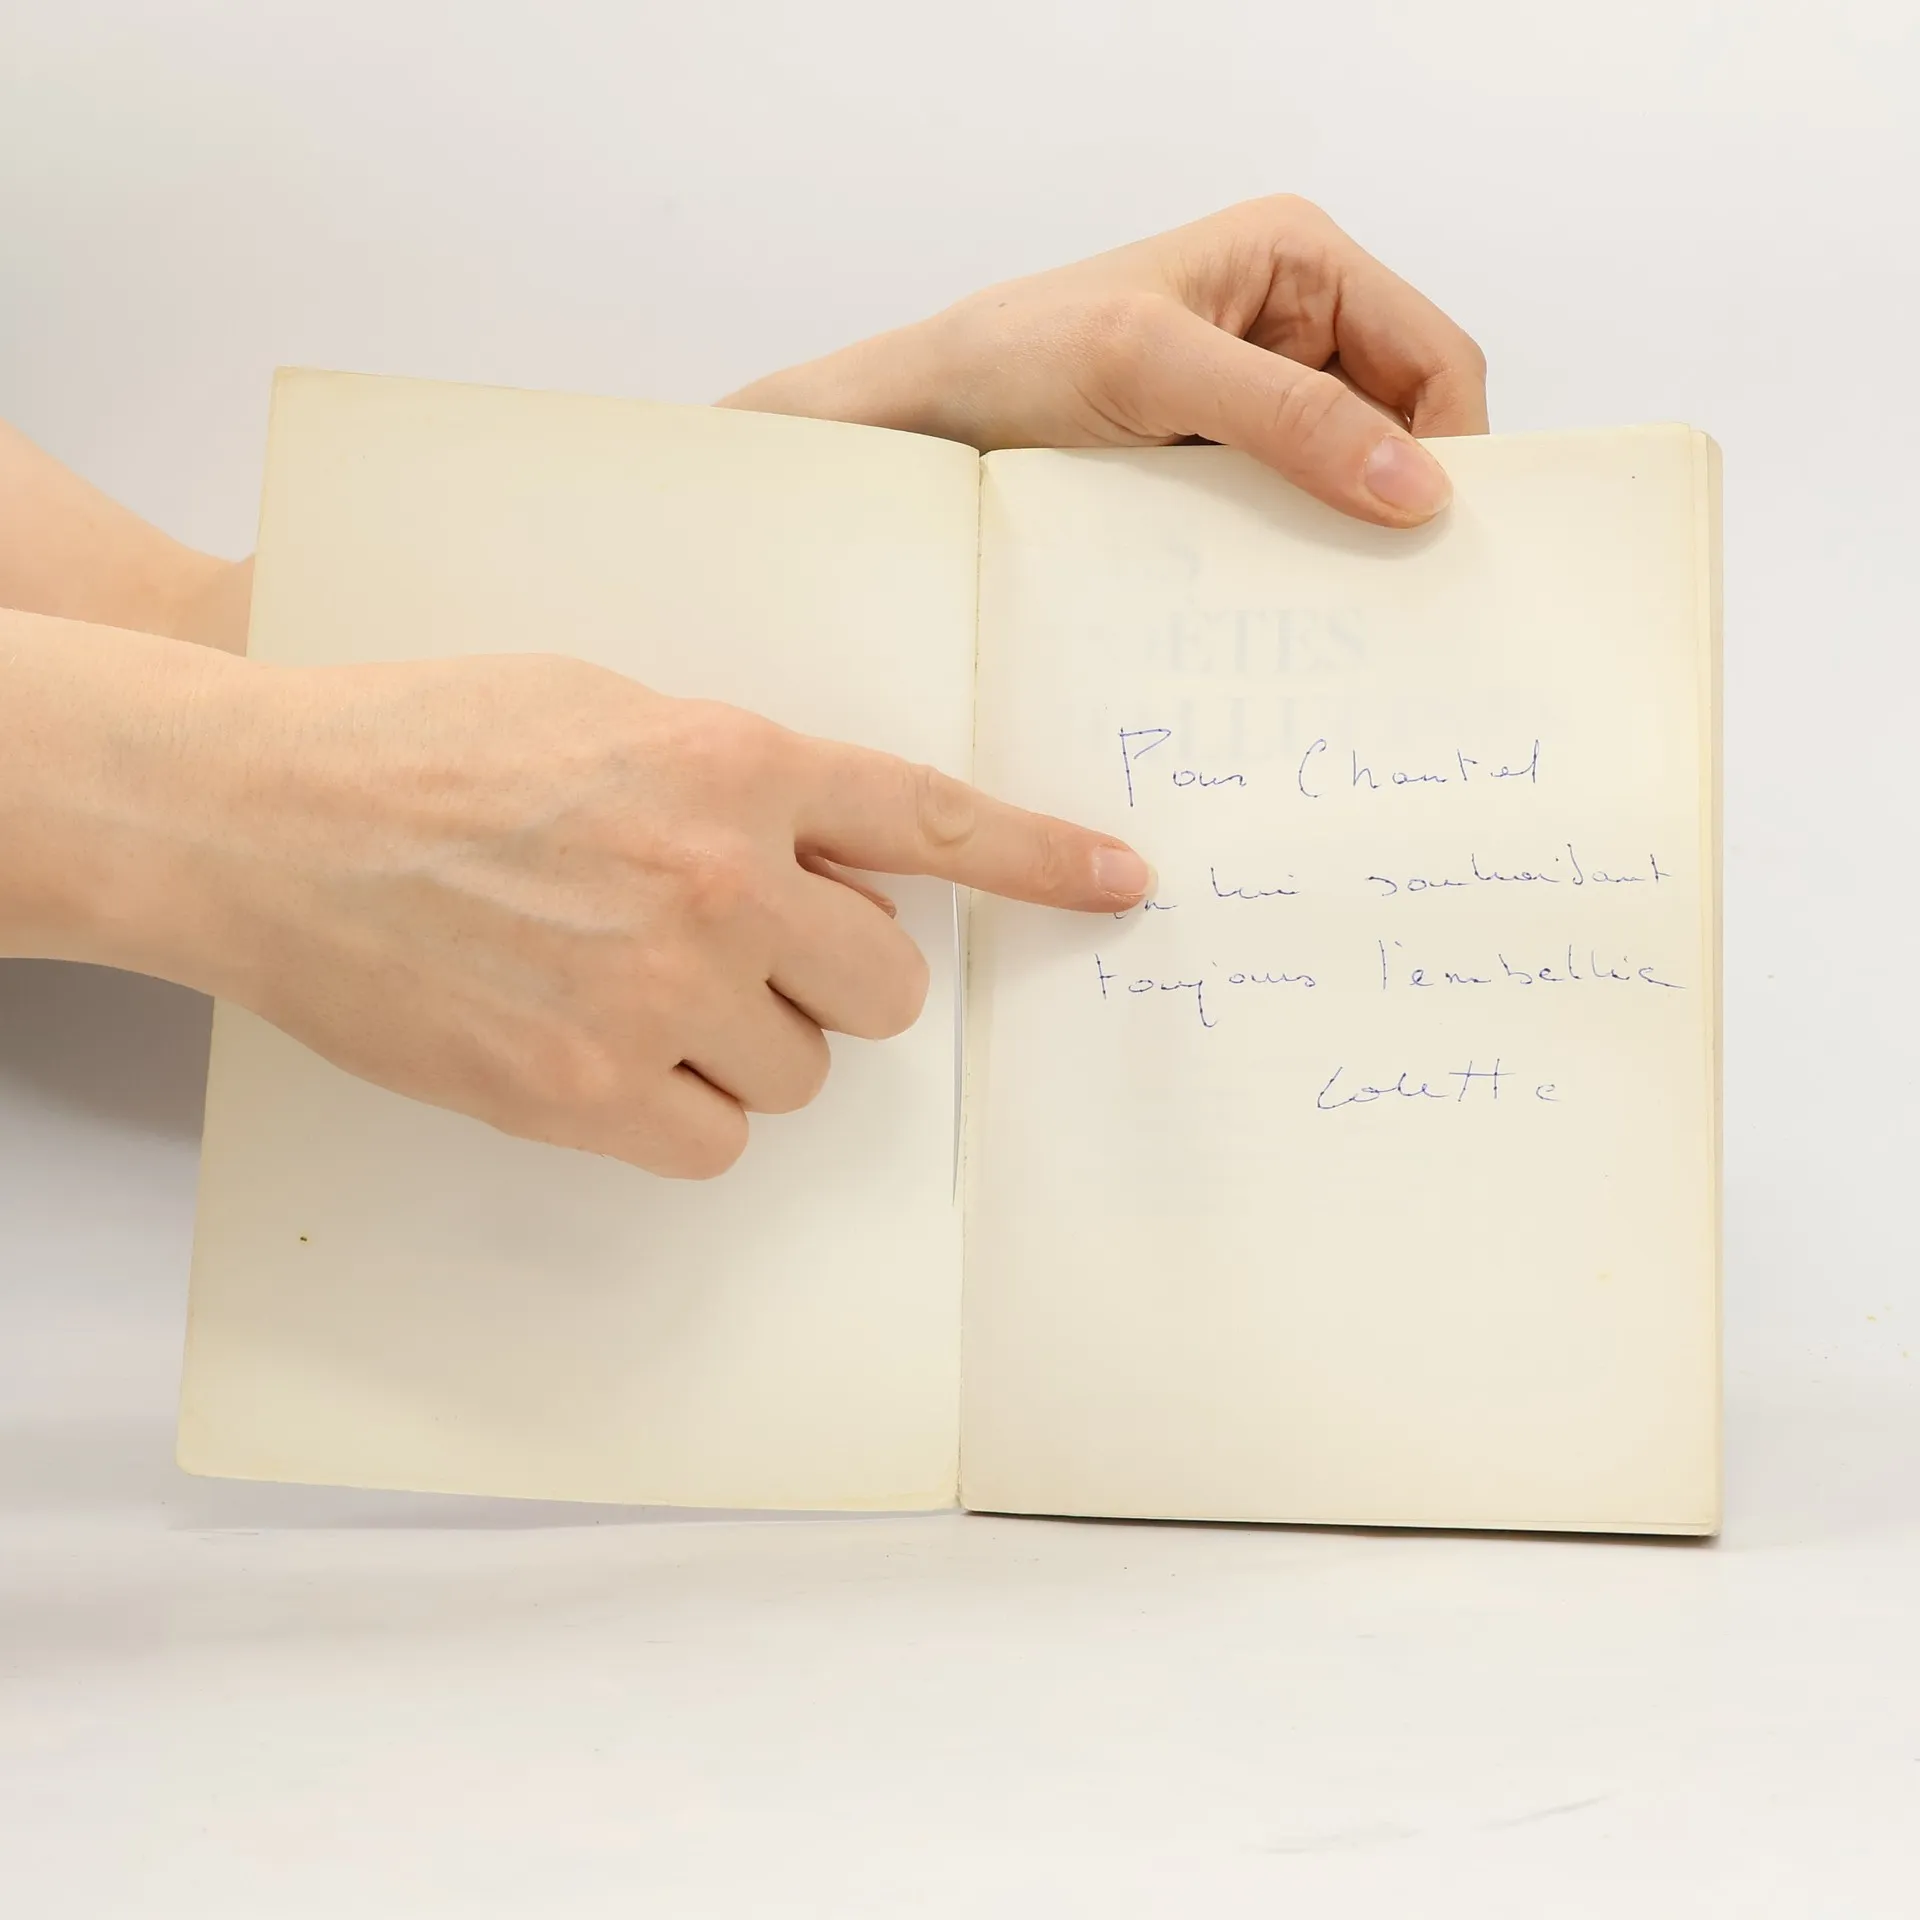 Pour Chantal
en lui souhaitant
toujours l'embellie
Colette